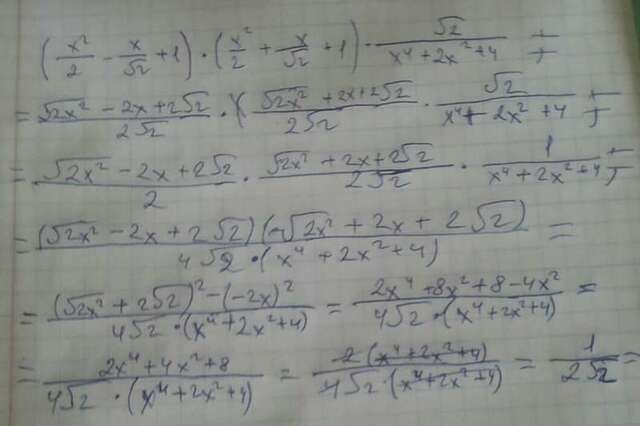 (x²/2 - x/√2 + 1) · (x²/2 + x/√2 + 1) · √2/(x⁴+2x²+4) =
= (√2x² - 2x + 2√2)/(2√2) · ((√2x² + 2x + 2√2)/(2√2) · √2/(x⁴ + 2x² + 4) =
= (√2x² - 2x + 2√2)/2 · (√2x² + 2x + 2√2)/(2√2) · 1/(x⁴ + 2x² + 4) =
= (√2x² - 2x + 2√2)(√2x² + 2x + 2√2)/(4√2 · (x⁴ + 2x² + 4)) =
= ((√2x² + 2√2)² - (-2x)²)/(4√2 · (x⁴ + 2x² + 4)) = (2x⁴ + 8x² + 8 - 4x²)/(4√2 · (x⁴ + 2x² + 4)) =
= (2x⁴ + 4x² + 8)/(4√2 · (x⁴ + 2x² + 4)) = 2(x⁴ + 2x² + 4)/(4√2 · (x⁴ + 2x² + 4)) = 1/(2√2) =